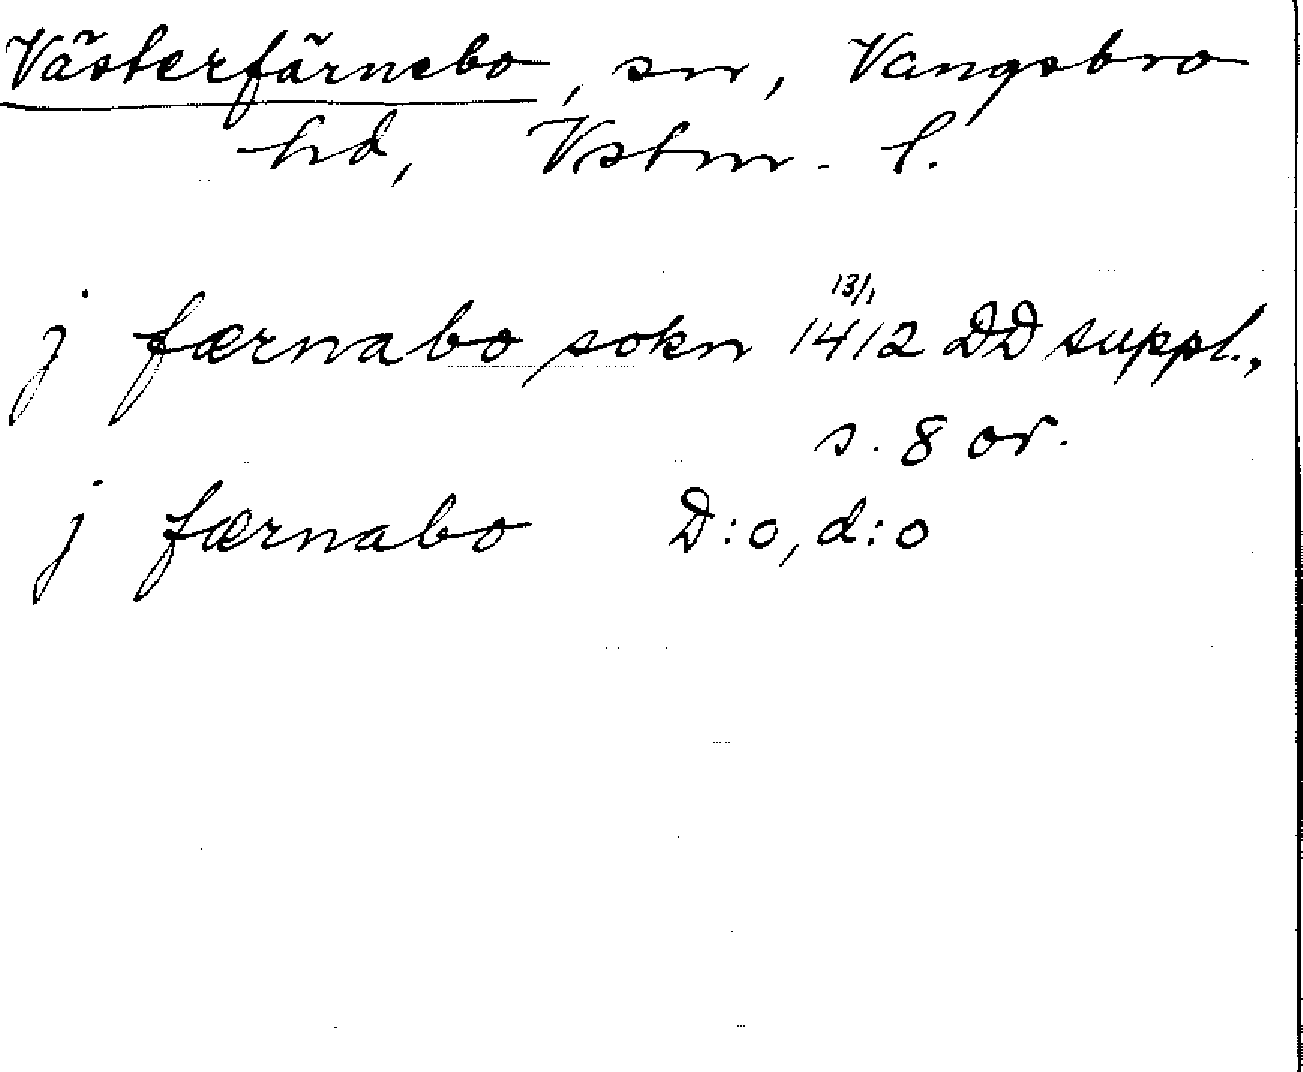 Västerfärnebo, sn, Vangsbro
hd, Vstm. l.
j færnabo sokn 13/1 1412 DD suppl.,
s. 8 or.
j færnabo D:o, d:o